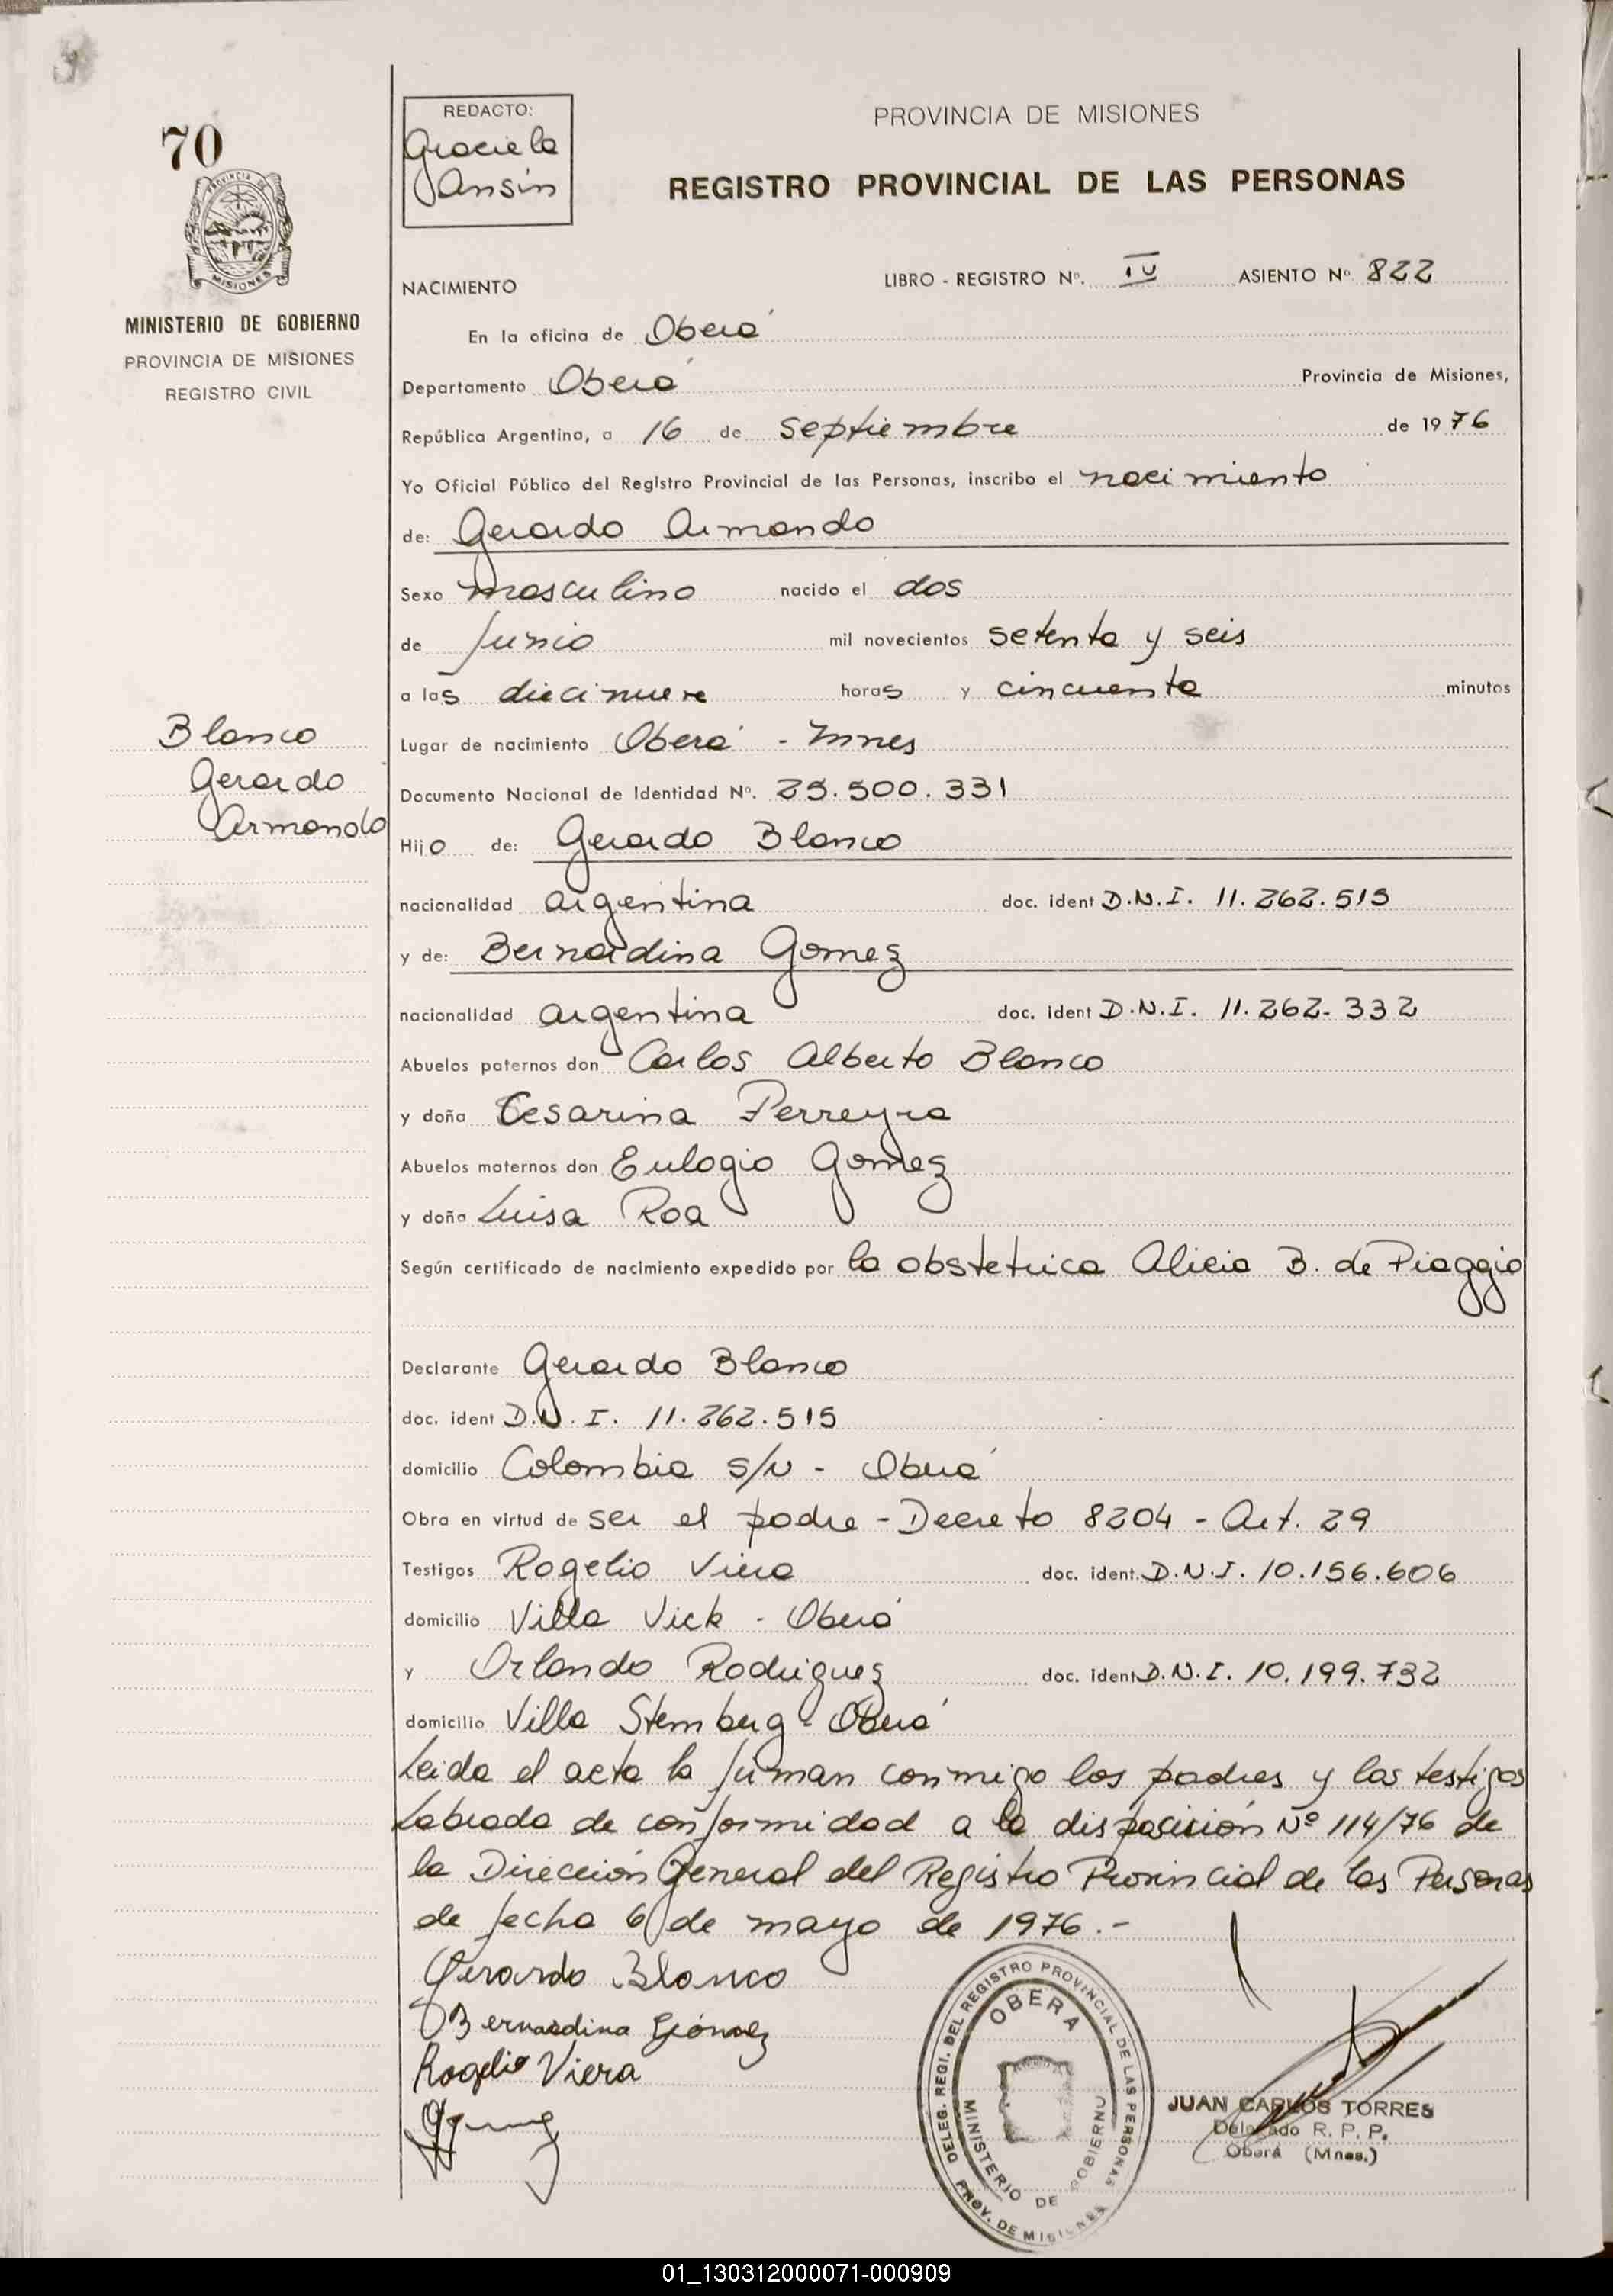 70
PROVINCIA DE
MISIONES
MINISTERIO DE GOBIERNO
PROVINCIA DE MISIONES
REGISTRO CIVIL
Blanco
Gerardo
Armando
REDACTO:
Graciela
Jansin
PROVINCIA DE MISIONES
REGISTRO PROVINCIAL DE LAS PERSONAS
NACIMIENTO LIBRO - REGISTRO Nº. IV ASIENTO Nº 822
En la oficina de Oberá
Departamento Oberá Provincia de Misiones,
República Argentina, a 16 de septiembre de 1976
Yo Oficial Público del Registro Provincial de las Personas, inscribo el nacimiento
de: Gerardo Armando
Sexo masculino nacido el dos
de Junio mil novecientos setenta y seis
a las diecinueve horas y cincuenta minutos
Lugar de nacimiento Oberá - Mnes
Documento Nacional de Identidad Nº. 25.500.331
Hijo de: Gerardo Blanco
nacionalidad argentina doc. ident D.N.I. 11.262.515
y de: Bernardina Gomez
nacionalidad argentina doc. ident D.N.I. 11.262.332
Abuelos paternos don Carlos Alberto Blanco
y doña Cesarina Ferreyra
Abuelos maternos don Eulogio Gomez
y doña Luisa Roa
Según certificado de nacimiento expedido por la obstetrica Alicia B. de Piaggio
Declarante Gerardo Blanco
doc. ident D.N.I. 11.262.515
domicilio Colombia s/N - Oberá
Obra en virtud de ser el padre - Decreto 8204 - Art. 29
Testigos Rogelio Viera doc. ident. D.N.I. 10.156.606
domicilio Villa Vick - Oberá
y Orlando Rodriguez doc. ident D.N.I. 10.199.732
domicilio Villa Stemberg - Oberá
Leida el acta la firman conmigo los padres y los testigos
Labrada de conformidad a la disposición Nº 114/76 de
la Dirección General del Registro Provincial de las Personas
de fecha 6 de mayo de 1976.-
Gerardo Blanco
Bernardina Gómez
Rogelio Viera
DELEG. REGI. DEL REGISTRO PROVINCIAL DE LAS PERSONAS
OBERA
MINISTERIO DE GOBIERNO
PROV. DE MISIONES
JUAN CARLOS TORRES
Delegado R. P. P.
Oberá (Mnes.)
01_130312000071-000909